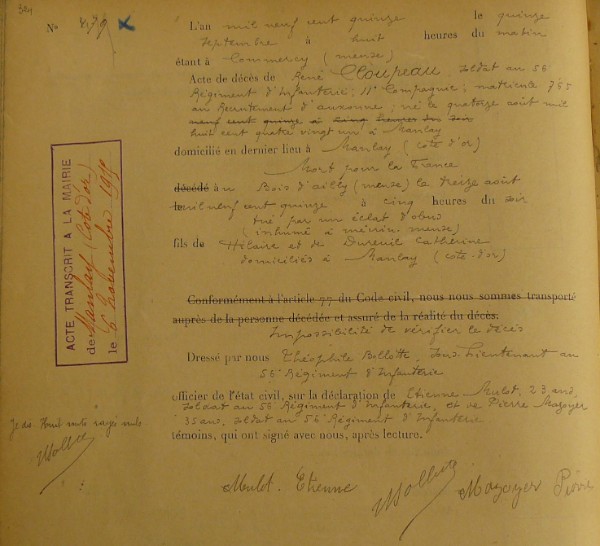 324
No 479 x
L'an mil neuf cent quinze le quinze
Septembre à huit heures du matin
étant à Commercy (meuse)
Acte de décès de René Cloupeau, soldat au 56
Régiment d'Infanterie, 11e Compagnie; matricule 765
au Recrutement d'auxonne; né le quatorze août mil
neuf cent quinze à cinq heures du soir
huit cent quatre vingt un à Manlay
domicilié en dernier lieu à Manlay (côte d'or)
Mort pour la France
décédé à Bois d'ailly (meuse) le treize août
mil neuf cent quinze à cinq heures du soir
tué par un éclat d'obus
(inhumé à mécrin meuse)
fils de Hilaire et de Dureuil Catherine
domiciliés à Manlay (côte-d'or)
Conformément à l'article 77 du Code civil, nous nous sommes transporté
auprès de la personne décédée et assuré de la réalité du décès.
Impossibilité de vérifier le décès
Dressé par nous Théophile Bollotte, sous Lieutenant au
56e Régiment d'Infanterie
officier de l'état civil, sur la déclaration de Etienne Mulot, 23 ans,
soldat au 56 Régiment d'Infanterie, et de Pierre Mazoyer
35 ans, soldat au 56e Régiment d'Infanterie
témoins, qui ont signé avec nous, après lecture.
Mulot Etienne
Mazoyer Pierre
ACTE TRANSCRIT A LA MAIRIE
de Manlay (Côte d'or)
le 6 novembre 1919
mots rayés nuls